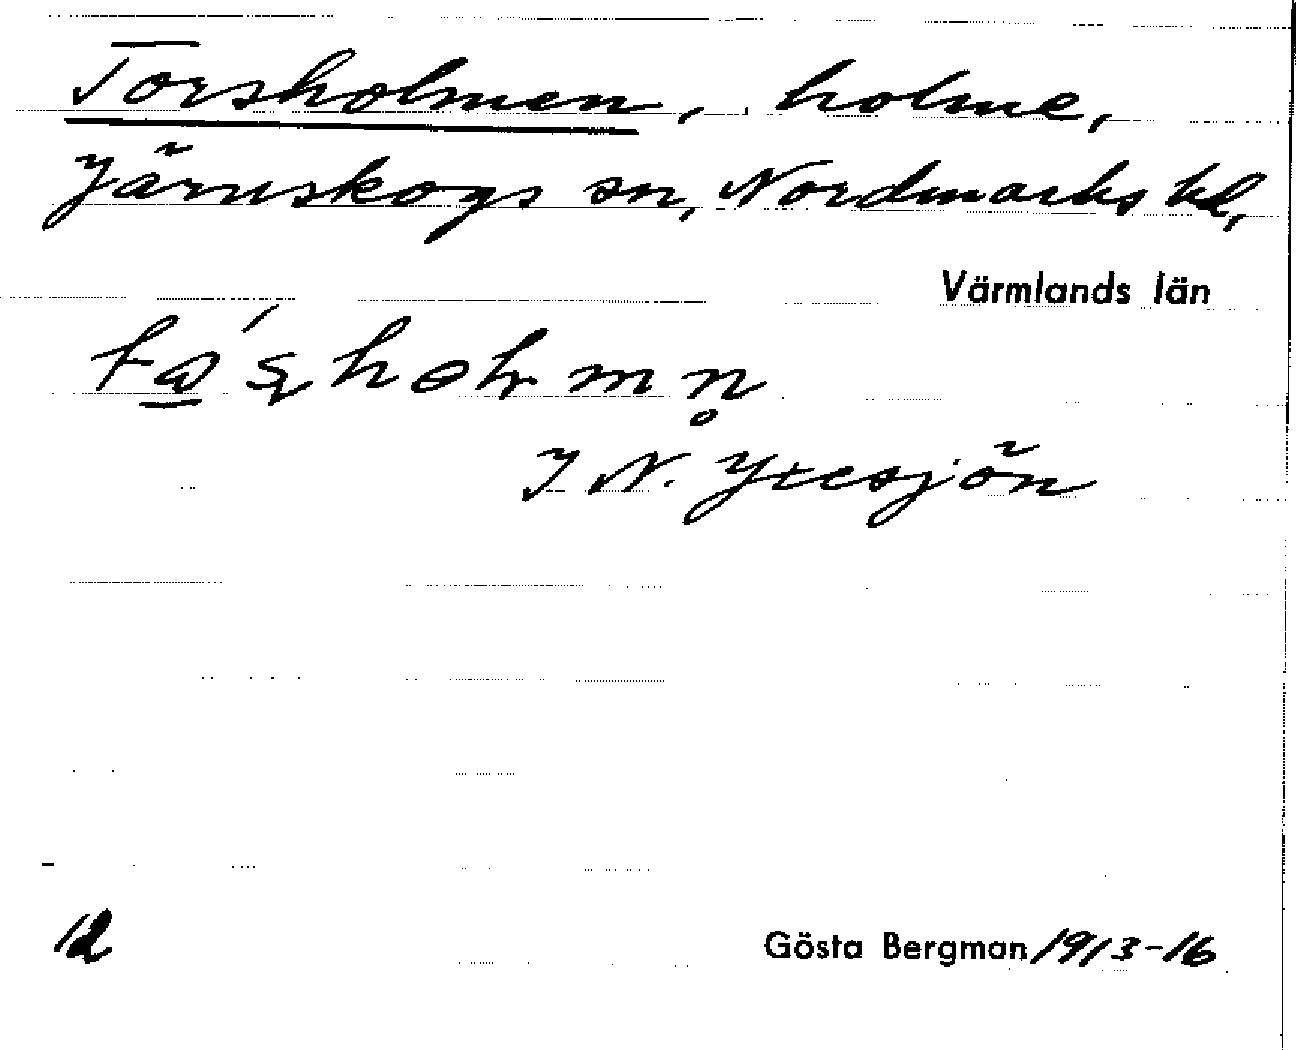 Torsholmen, holme,
Järnskogs sn, Nordmarks hd,
Värmlands län
I N. Ytesjön
12
Gösta Bergman 1913-16